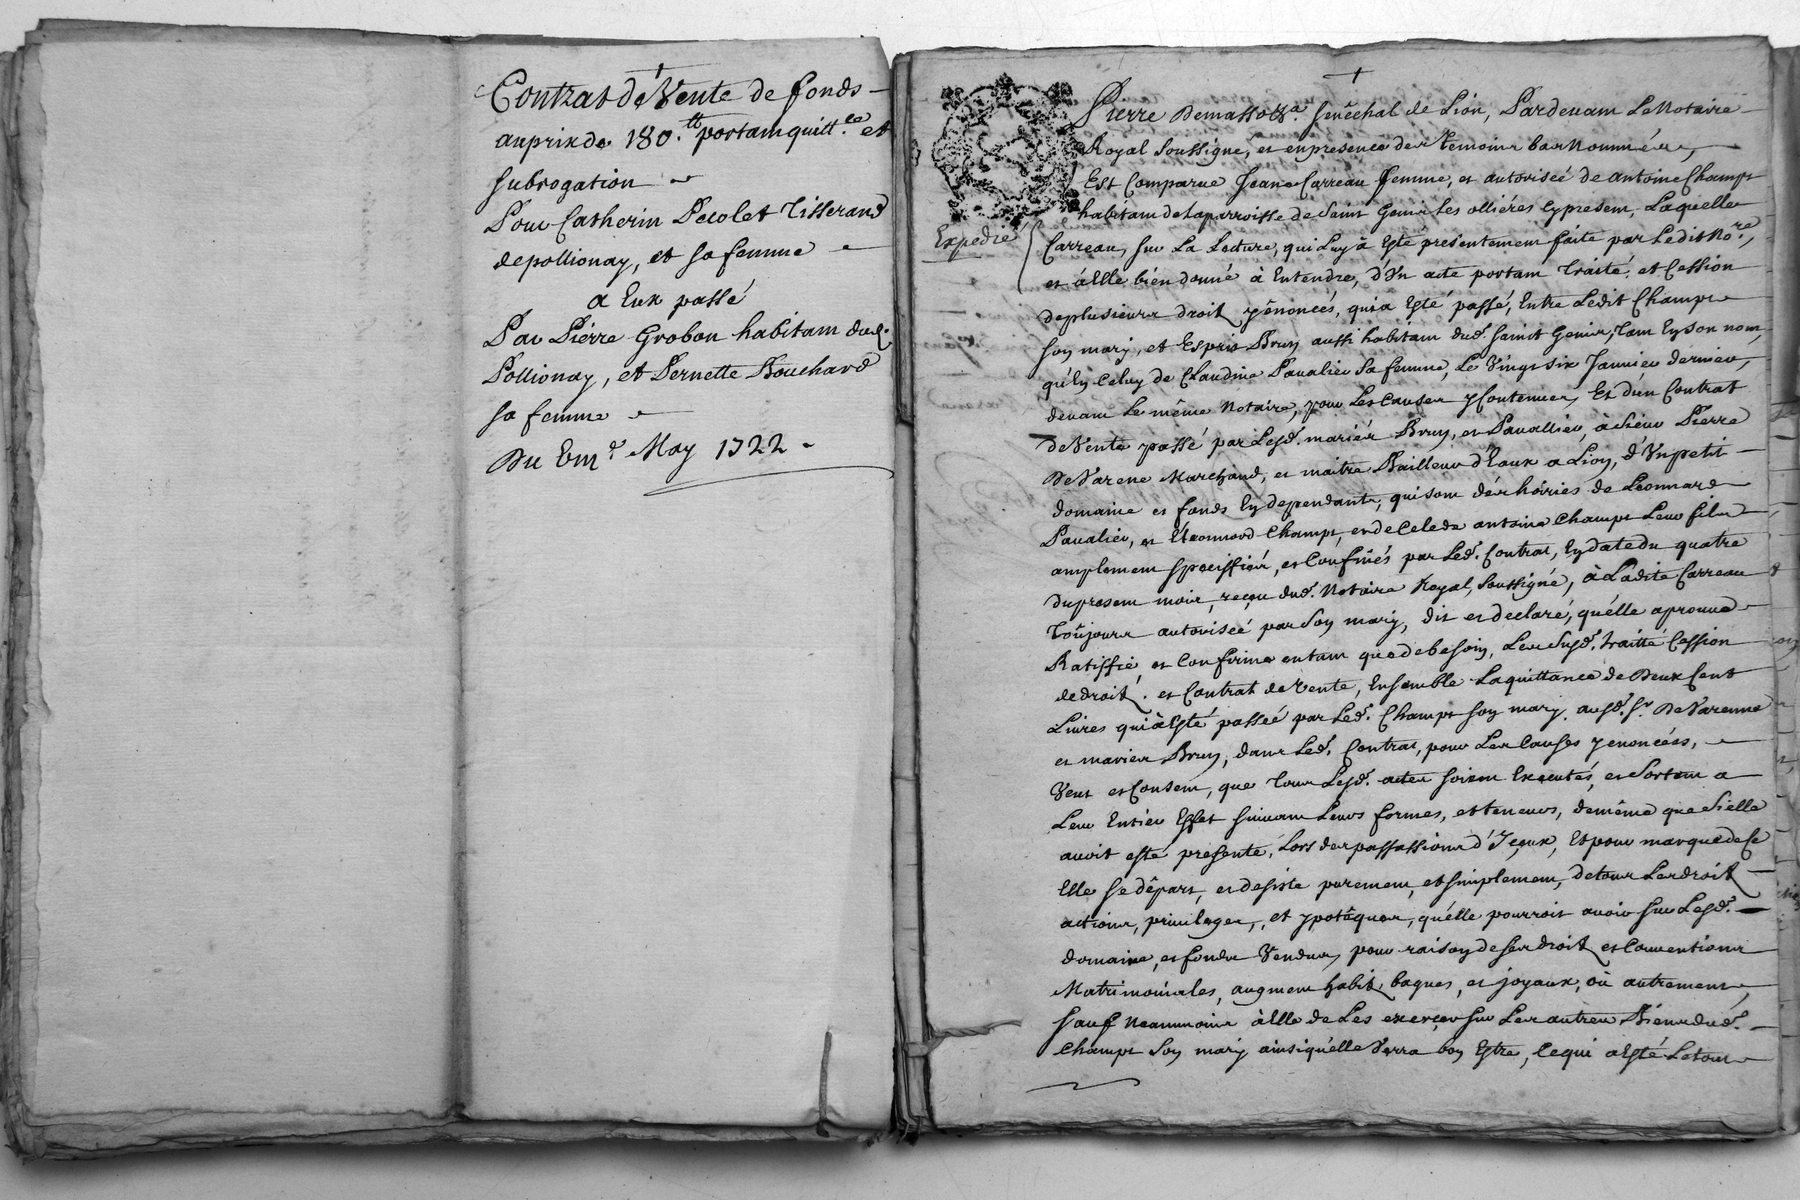 Contrat de Vente de fonds
au prix de 180.tt portam quitt.ce et
subrogation
Pour Catherin Decolet Tisserand
de pollionay, et sa femme
a Eux passé
Par Pierre Grobon habitam dud.
Pollionay, et Pernette Bouchard
sa femme
Du May 1722
Pierre Demasso &a. Senêchal de Lion, Pardevam Le Notaire
Royal soussigné, et en presence des Temoins bas Nommées,
Est Comparue Jeane Carreau femme, et autorisée de antoine Champs
habitam de La parroisse de Saint Genis Les ollières Cy presem, Laquelle
Expedié
Carreau, sur La Lecture, qui Luy à Esté presentemem faite par Ledit No.re,
et à Elle bien donné à Entendre, d'Un acte portam Traité, et Cession
de plusieurs droits y énoncés, qui a Esté passé, Entre Ledit Champs
son mary, et Esprit Brun aussi habitam dud. saint Genis, Tam En son nom,
qu'En Celuy de Claudine Pavalier sa femme, Le Vingt six Janvier dernier,
devam Le même Notaire, pour Les Causes y Contenues, Et d'un Contrat
de Vente passé par Lesd. mariés Brun, et Pavallier, à sieur Pierre
De Varene Marchand, et maitre Bailleur d'Eaux a Lion, d'Un petit
domaine et fonds En dependants, qui som des hoiries de Leonnard
Pavalier, et Leonnard Champs, et de Cele de antoine Champs Leur fils
amplemem specifiés, et Confinés par Led. Contrat, En date du quatre
du presem mois, reçu dud. Notaire Royal, soussigné, à Ladite Carreau
Toûjours autorisée par son mary, dit et declaré, qu'elle aprouve
Ratiffie, et Confirme en tam que de besoin, Les Susd. traitté Cession
de droits. et Contrat de Vente, Ensemble La quittance de Deux Cent
Livres qui à Esté passée par Led. Champs son mary. ausd. Sr. De Varenne
et mariés Brun, dans Led. Contrat, pour Les Causes y enoncées,
Veut et Consem, que Tous Lesd. actes soiem Executés, et sortem a
Leur Entier Effet suivam Leurs formes, et teneurs, de même que si elle
avoit esté presente, Lors des passassions d'Iceux, Et pour marque de Ce
Elle se départ, et desiste puremem, et simplemem, de tous Les droits
actions, privileges, et ypotêques, qu'elle pourroit avoir sur Lesd.
domaine, et fonds Vendus, pour raison de ses droits et Conventions
Matrimoniales, augmem habits, bagues, et joyaux, où autrement,
sauf Neammoins à Elle de Les exercer sur Les autres Biens dud.
Champs son mary ainsi qu'elle Verra bon Estre, Ce qui a Esté Le tout